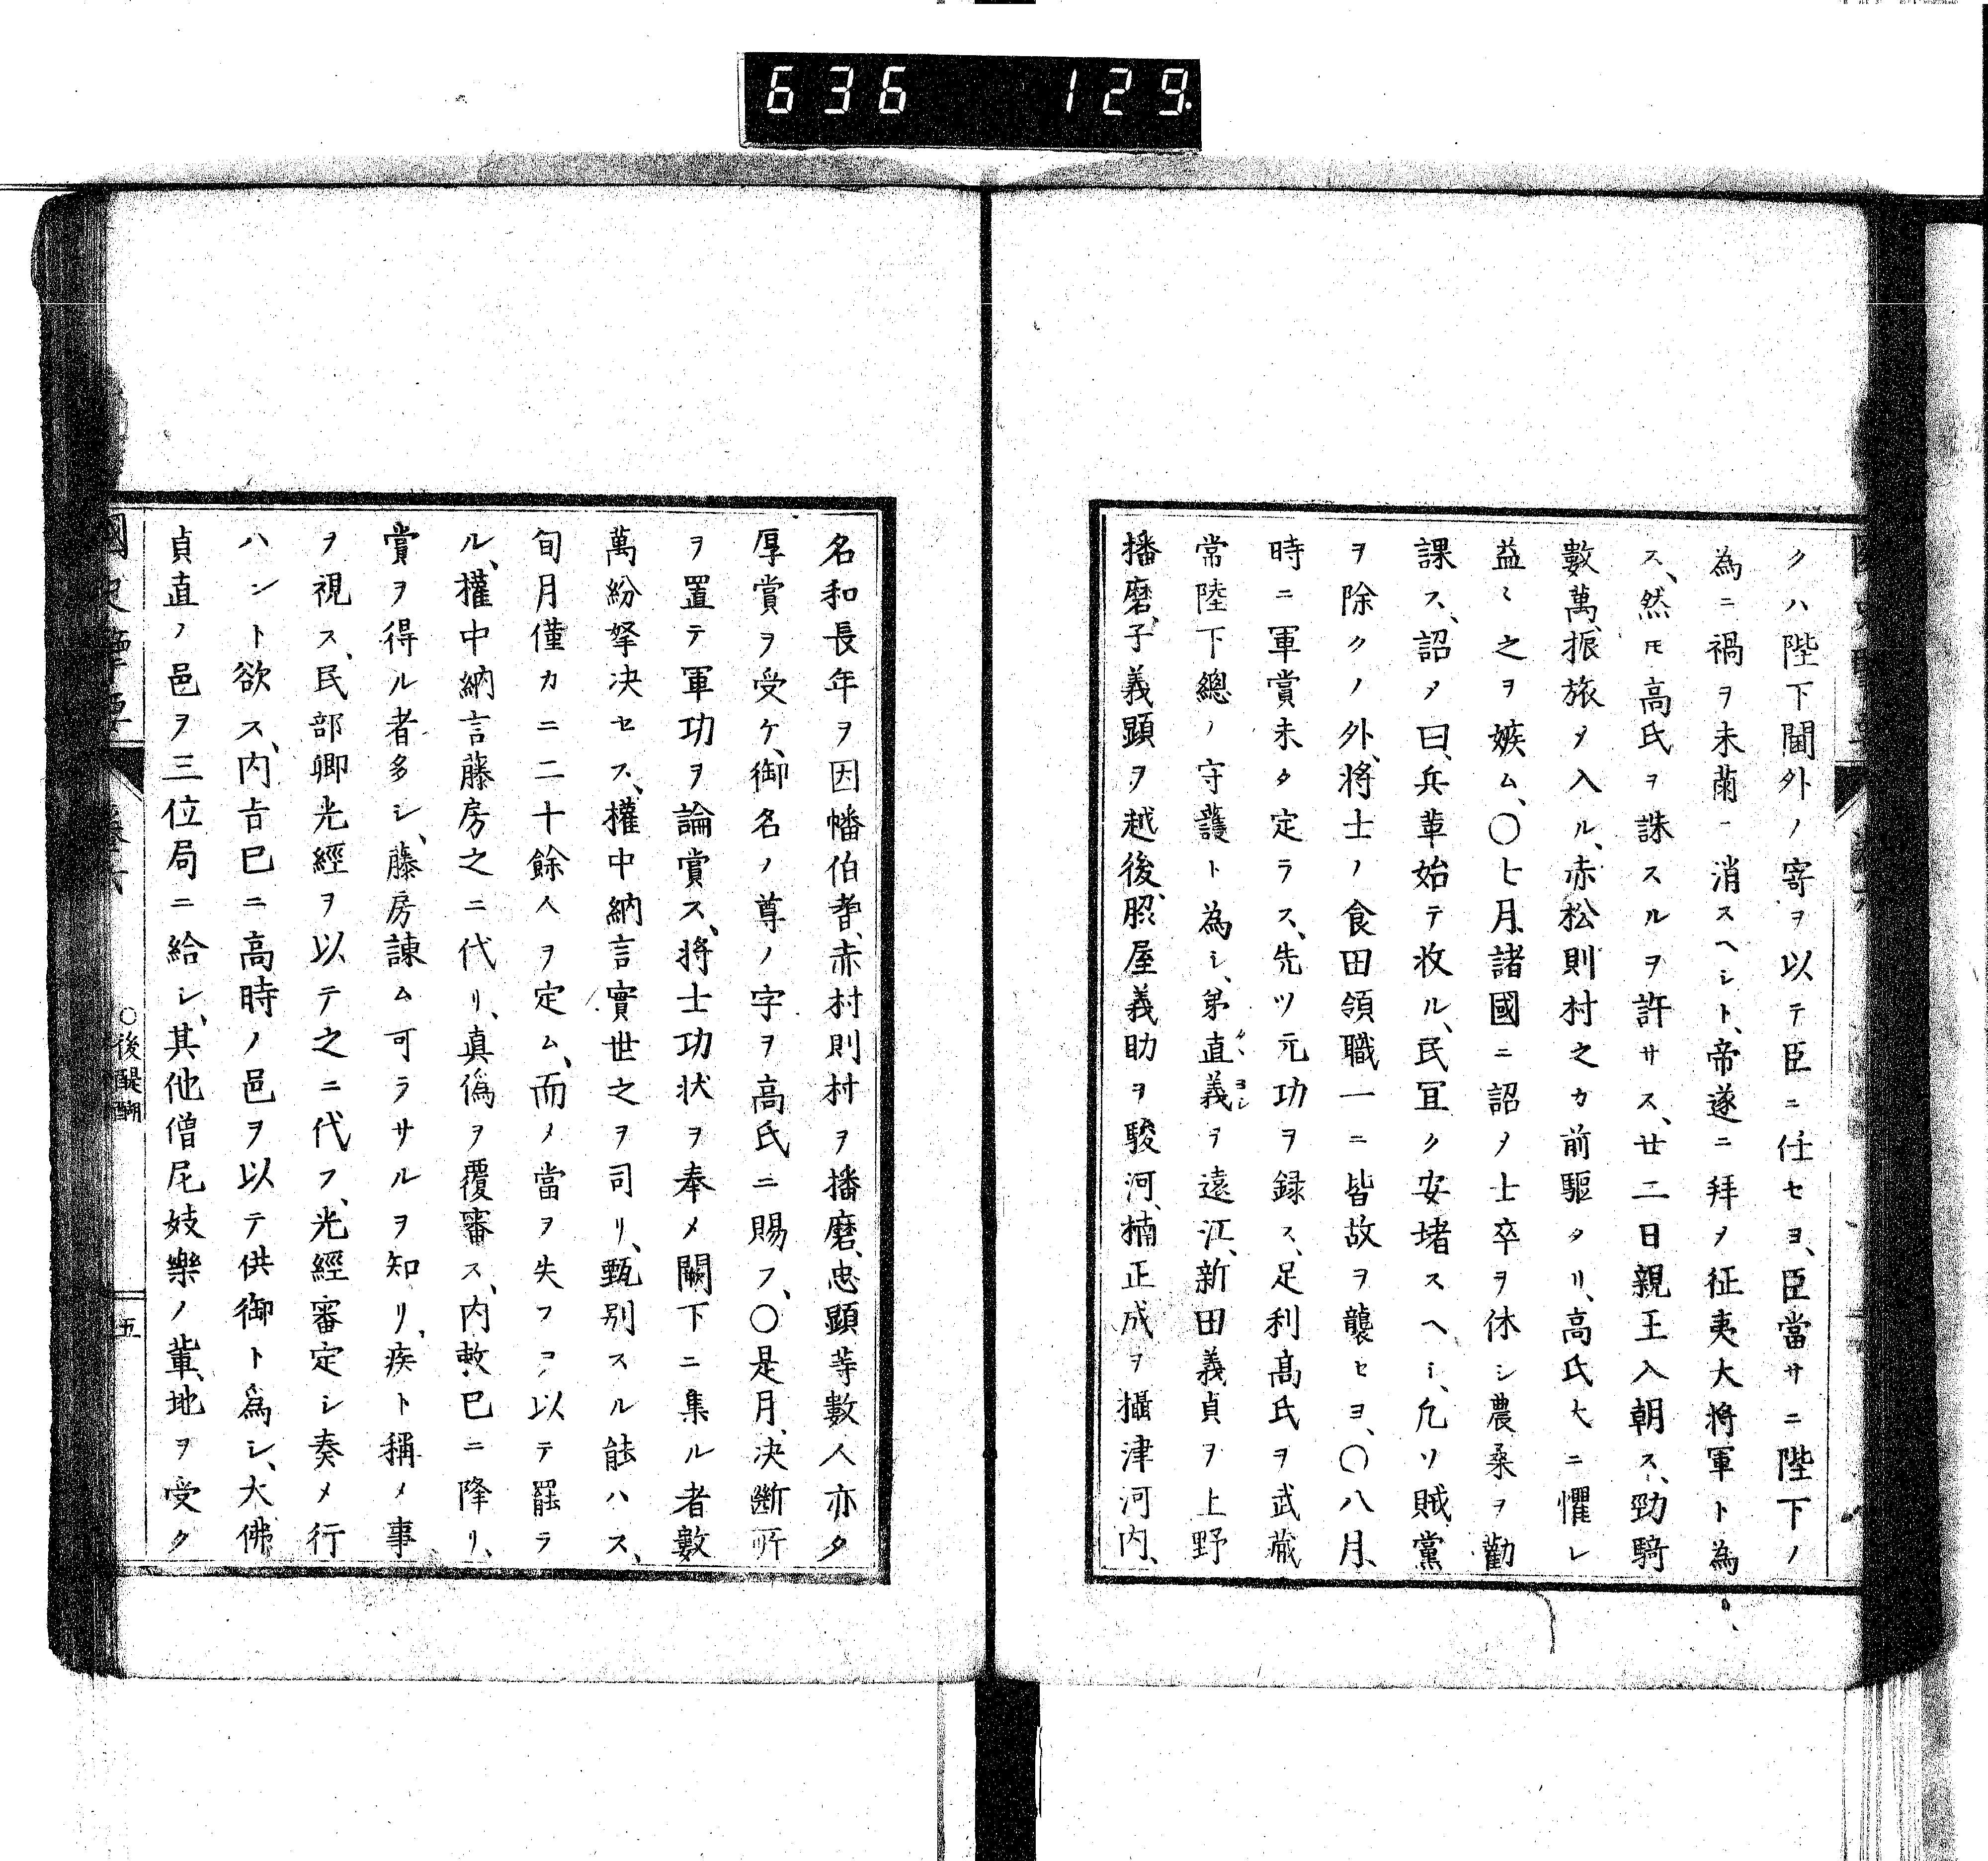 636 129.
クハ陛下閫外ノ寄ヲ以テ臣ニ任セヨ、臣當サニ陛下ノ
為ニ禍ヲ未萠ニ消スヘシト、帝遂ニ拜ヲ征夷大将軍ト為
ス、然𪜈高氏ヲ誅スルヲ許サス、廿二日親王入朝ス、勁騎
數萬、振旅メ入ル、赤松則村之カ前驅タリ、高氏大ニ懼レ
益〻之ヲ嫉ム、〇七月、諸國ニ詔メ士卒ヲ休シ農桑ヲ勸
課ス、詔メ曰、兵革始テ收ル、民冝ク安堵スヘシ、凢ソ賊黨
ヲ除クノ外、将士ノ食田領職一ニ皆故ヲ襲セヨ、〇八月、
時ニ軍賞未タ定ラス、先ツ元功ヲ録ス、足利髙氏ヲ武藏
常陸下總ノ守護ト為シ、弟直義ヲ遠江、新田義貞ヲ上野
播磨、子義顕ヲ越後、脇屋義助ヲ駿河、楠正成ヲ攝津河内、
名和長年ヲ因幡伯耆、赤村則村ヲ播磨、忠顕等數人亦タ
厚賞ヲ受ケ、御名ノ尊ノ字ヲ高氏ニ賜フ、〇是月、决斷所
ヲ置テ軍功ヲ論賞ス、将士功状ヲ奉メ闕下ニ集ル者數
萬紛拏决セス、權中納言實世之ヲ司リ、甄别スル能ハス、
旬月僅カニ二十餘人ヲ定ム、而メ當ヲ失フヿ以テ罷ラ
ル、權中納言藤房之ニ代リ、真僞ヲ覆審ス、内敕已ニ降リ、
賞ヲ得ル者多シ、藤房諫ム可ラサルヲ知リ、疾ト稱メ事
ヲ視ス、民部卿光經ヲ以テ之ニ代フ、光經審定シ奏メ行
ハント欲ス、内㫖已ニ高時ノ邑ヲ以テ供御ト為シ、大佛
貞直ノ邑ヲ三位局ニ給シ、其他僧尼妓樂ノ輩、地ヲ受ク
國史擥要 卷六 〇後醍醐 五